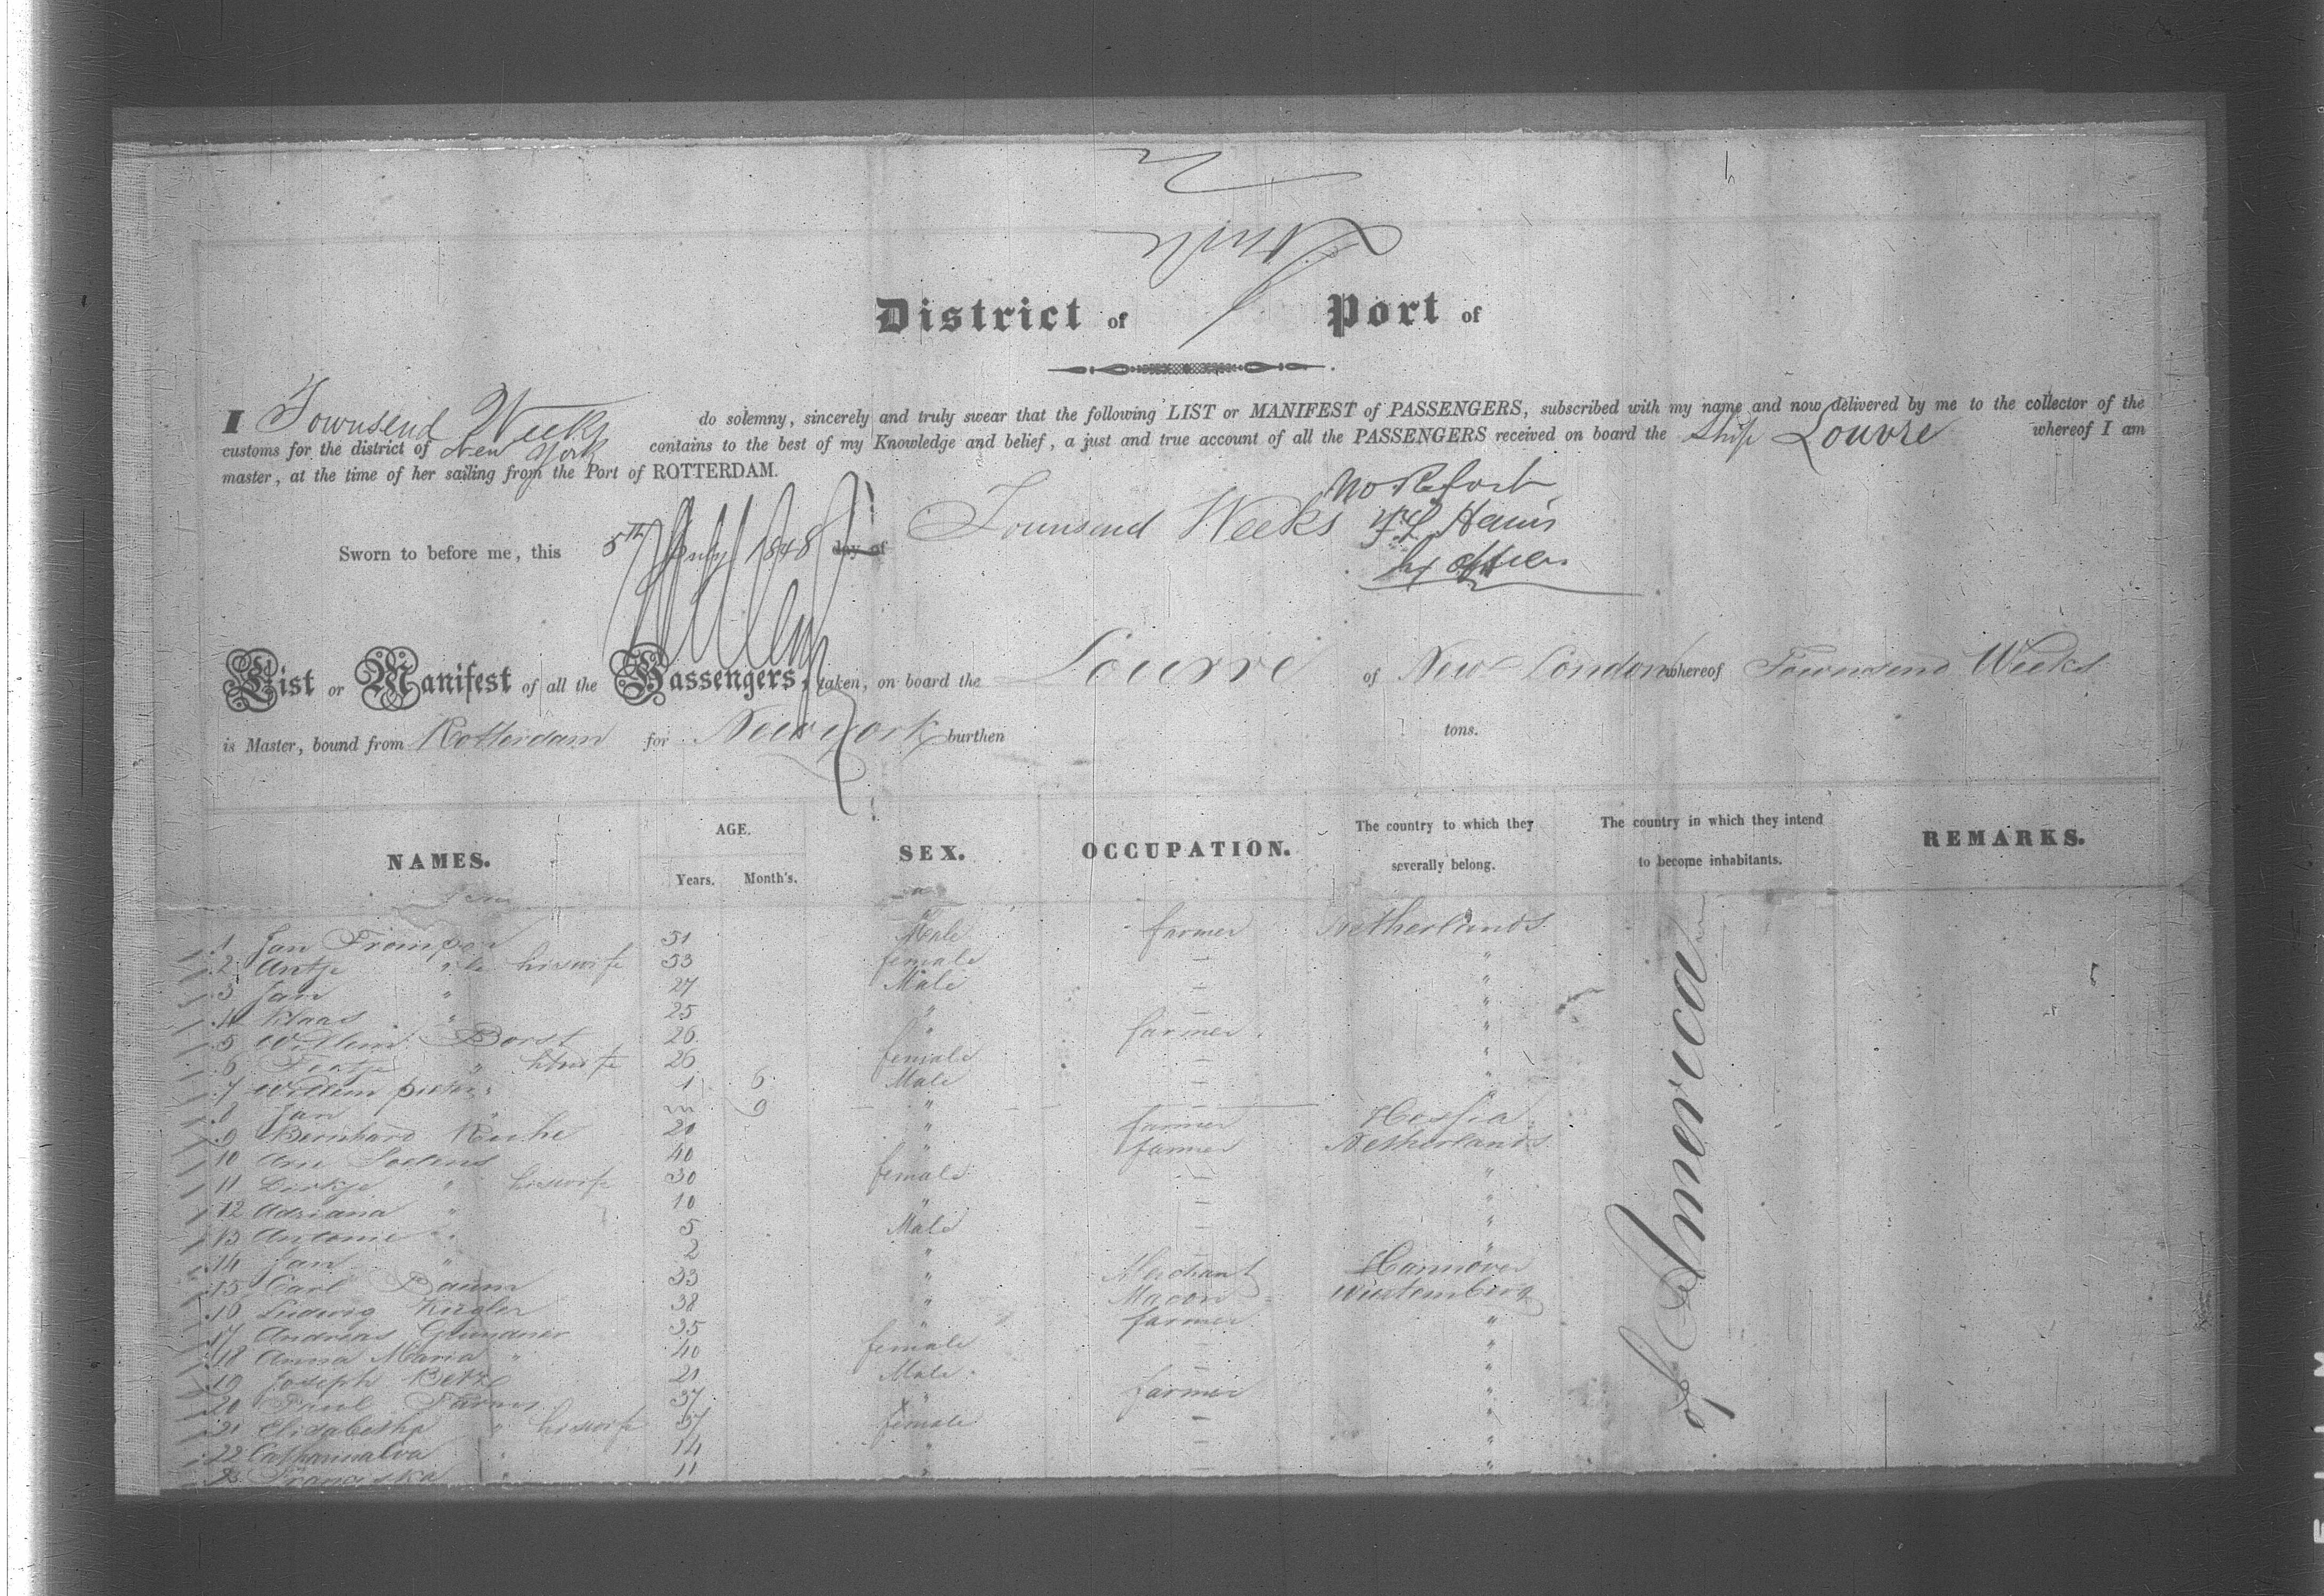 District of Port of
I Townsend Weeks do solemny, sincerely and truly swear that the following LIST or MANIFEST of PASSENGERS, subscribed with my name and now delivered by me to the collector of the
customs for the district of New York contains to the best of my Knowledge and belief, a just and true account of all the PASSENGERS received on board the Ship Louvre whereof I am
master, at the time of her sailing from the Port of ROTTERDAM.
Townsend Weeks
Sworn to before me, this 5th July 1848 day of
List or Manifest of all the Passengers, taken, on board the Louvre of New London whereof Townsend Weeks
is Master, bound from Rotterdam for New york burthen tons.
NAMES. AGE. Years. Month's. SEX. OCCUPATION. The country to which they severally belong. The country in which they intend to become inhabitants. REMARKS.
1 Jan Tromper 51 Male farmer Netherlands
2 Antje " his wife 53 female — "
3 Jan " 27 Male — "
4 Klaas " 25 " — "
5 Willem Borst 26 " farmer "
6 " his wife 26 female — "
7 Willem 1 6 Male — "
8 Jan " 9 " —
9 Bernhard 20 " farmer Hessia
10 Arie 40 " farmer Netherlands
11 Dirkje " his wife 30 female — "
12 Adriana " 10 " — "
13 Antonie " 5 Male — "
14 Jan " 2 " — "
15 Carl Baum 33 " Merchant Hannover
16 Ludwig Kugler 38 " Macon Wurtemberg
17 Andreas 35 " farmer "
18 Anna Maria " 40 female — "
19 Joseph 21 Male "
20 Paul 37 " farmer "
21 Elisabetha " his wife 37 female — "
22 Catharina Eva " 14 " — "
23 Franciska " 11 " — "
of America